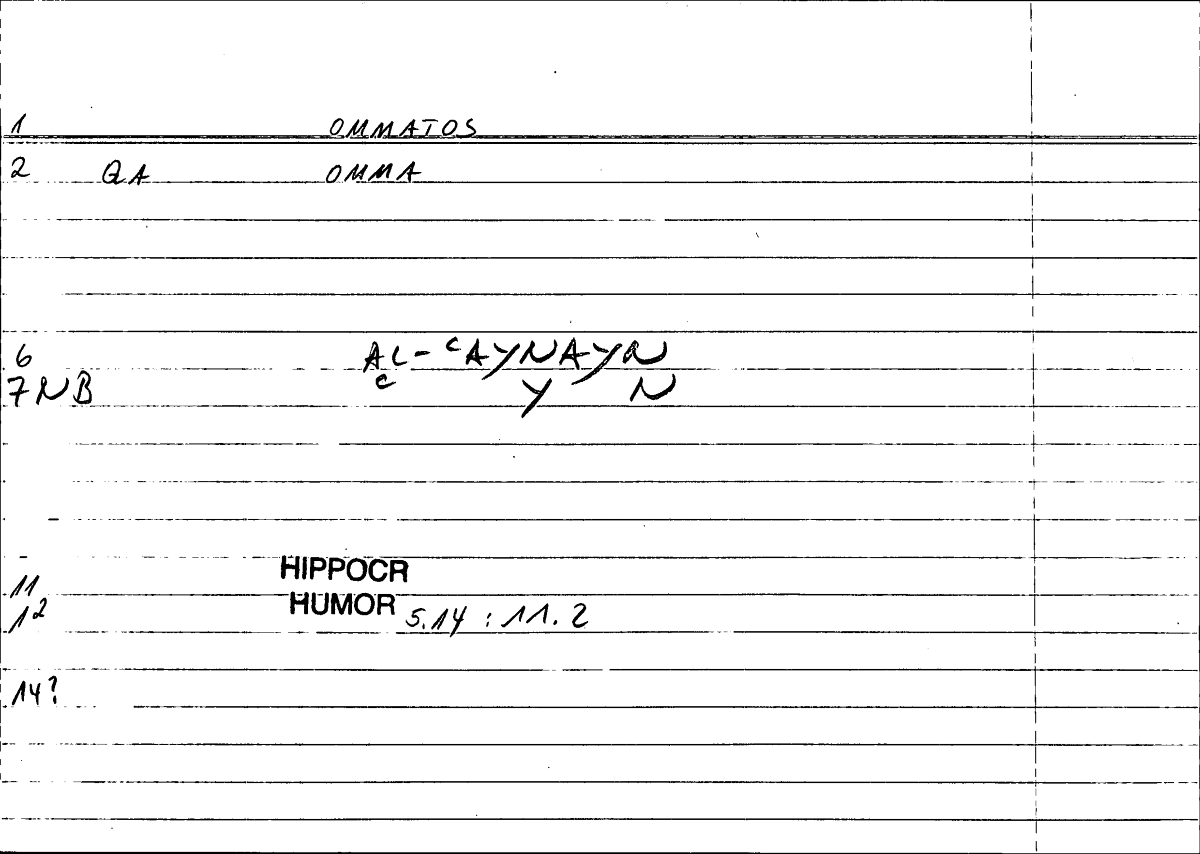 1 OMMATOS
2 QA OMMA
6 AL-ᶜAYNAYN
7NB c Y N
HIPPOCR
11
HUMOR 5.14 : 11.2
12
14?